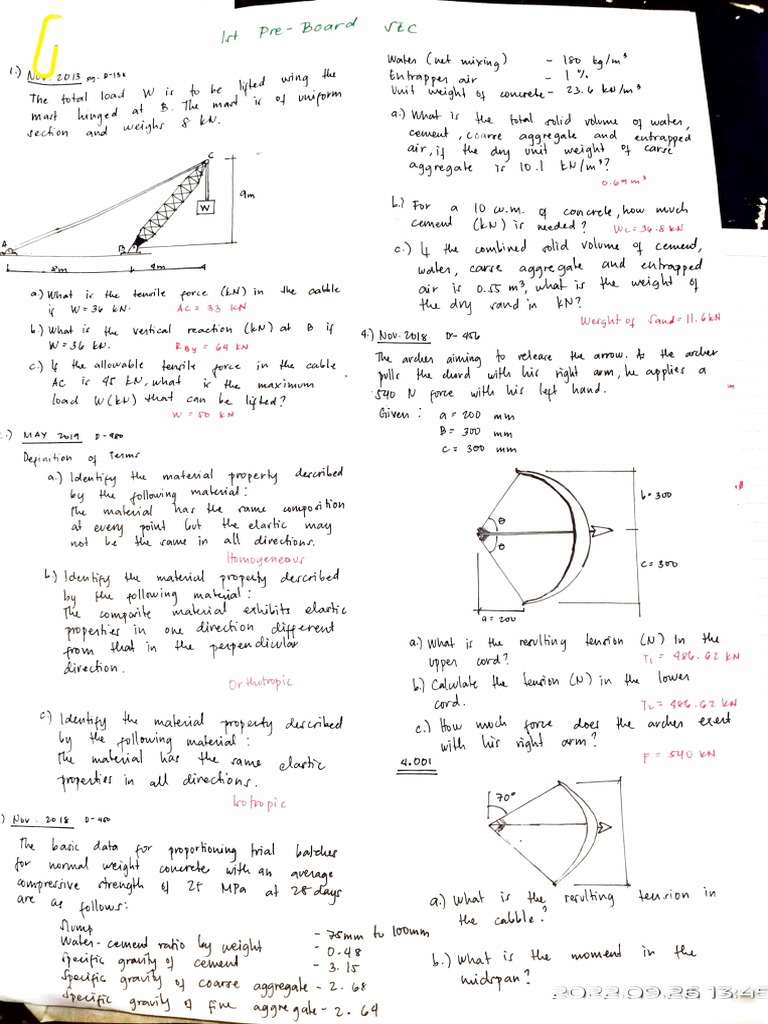 1st Pre-Board SEC
1.) Nov. 2013 pg. D-138
The total load W is to be lifted using the
mast hinged at B. The mast is of uniform
section and weighs 8 kN.
C
9m
W
A
B
8m
4m
a.) What is the tensile force (kN) in the cabble
if W=36 kN. AC = 33 kN
b.) What is the vertical reaction (kN) at B if
W=36 kN. RBy = 64 kN
c.) If the allowable tensile force in the cable
AC is 45 kN, what is the maximum
load W(kN) that can be lifted?
W = 50 kN
2.) MAY 2019 D-480
Definition of Terms
a.) Identify the material property described
by the following material:
The material has the same composition
at every point but the elastic may
not be the same in all directions.
Homogeneous
b.) Identify the material property described
by the following material:
The composite material exhibits elastic
properties in one direction different
from that in the perpendicular
direction.
Orthotropic
c) Identify the material property described
by the following material:
The material has the same elastic
properties in all directions.
Isotropic
) Nov. 2018 D-450
The basic data for proportioning trial batches
for normal weight concrete with an average
compressive strength of 25 MPa at 28 days
are as follows:
Slump - 75mm to 100mm
Water-cement ratio by weight - 0.48
Specific gravity of cement - 3.15
Specific gravity of coarse aggregate - 2.68
Specific gravity of fine aggregate - 2.64
Water (net mixing) - 180 kg/m³
Entrapper air - 1 %
Unit weight of concrete - 23.6 kN/m³
a.) What is the total solid volume of water,
cement, coarse aggregate and entrapped
air, if the dry unit weight of carse
aggregate is 10.1 kN/m³?
0.69 m³
b.) For a 10 cu.m. of concrete, how much
cement (kN) is needed? Wc = 36.8 kN
c.) If the combined solid volume of cement,
water, carse aggregate and entrapped
air is 0.55 m³, what is the weight of
the dry sand in kN?
Weight of sand = 11.6 kN
4.) Nov. 2018 D-456
The archer aiming to release the arrow. As the archer
pulls the chord with his right arm, he applies a
540 N force with his left hand.
Given: a = 200 mm
B = 300 mm
C = 300 mm
b = 300
θ
θ
c = 300
a = 200
a.) What is the resulting tension (N) in the
upper cord? T1 = 486.62 kN
b.) Calculate the tension (N) in the lower
cord. T2 = 486.62 kN
c.) How much force does the archer exert
with his right arm?
F = 540 kN
4.001
70°
a.) What is the resulting tension in
the cabble?
b.) What is the moment in the
midspan?
2022.09.26 13:45